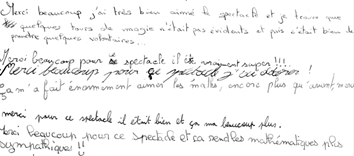 Merci beaucoup j'ai très bien aimé le spectacle et je trouve que
quelques tours de magie n'était pas évidents et puis c'était bien de
prendre quelques volontaires...
Merci beaucoup pour ce spectacle il été vraiment super !!!
Merci beaucoup pour ce spectacle j'ai adorer !
Ça m'a fait énormément aimer les maths, encore plus qu'avant,
merci pour ce spectacle il etait bien et ça ma beaucoup plus.
Merci beaucoup pour ce spectacle et ça rend les mathématiques plus
sympathiques !!